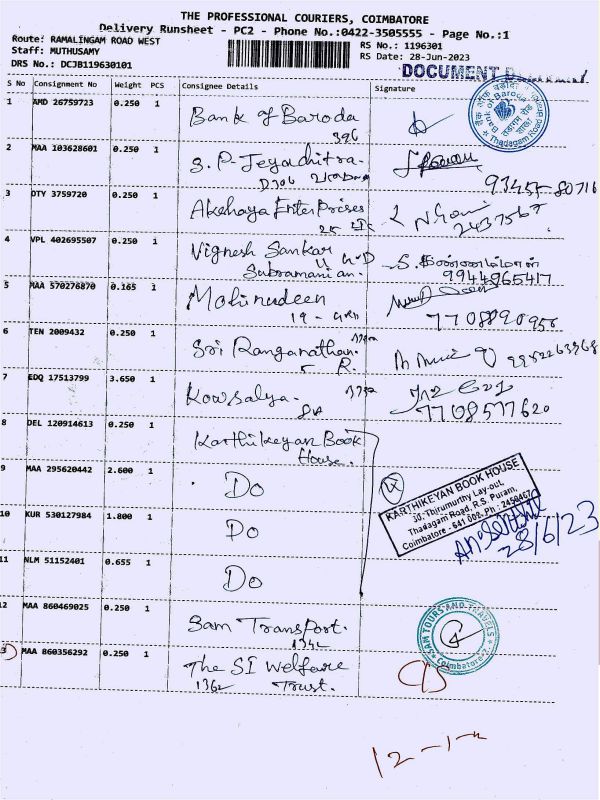 THE PROFESSIONAL COURIERS, COIMBATORE
Delivery Runsheet - PC2 - Phone No.:0422-3505555 - Page No.:1
Route: RAMALINGAM ROAD WEST
Staff: MUTHUSAMY
DRS No.: DCJB119630101
RS No.: 1196301
RS Date: 28-Jun-2023
DOCUMENT
S No Consignment No Weight PCS Consignee Details Signature
1 AMD 26759723 0.250 1 Bank of Baroda
396
Bank of Baroda
Thadagam Road
2 MAA 103628601 0.250 1 S. P. Jeyachitra.
93455 80716
3 DTV 3759720 0.250 1 Akshaya Enter Prises
2437567
4 VPL 402695507 0.250 1 Vignesh Sankar
Subramanian.
9944965417
5 MAA 570276870 0.165 1 Mohinudeen
19 -
7708890958
6 TEN 2009432 0.250 1 Sri Ranganathan.
R.
9952263968
7 EDQ 17513799 3.650 1 Kowsalya.
7708577620
8 DEL 120914613 0.250 1 Karthikeyan Book
House.
9 MAA 295620442 2.600 1 Do
KARTHIKEYAN BOOK HOUSE
30, Thirumurthy Lay-out,
Thadagam Road, R.S. Puram,
Coimbatore - 641 002. Ph : 2450467
28/6/23
10 KUR 530127984 1.800 1 Do
11 NLM 51152401 0.655 1 Do
12 MAA 860469025 0.250 1 Sam Transport.
1342
SAM TOURS AND TRAVELS
Coimbatore-2.
MAA 860356292 0.250 1 The SI Welfare
1362 Trust.